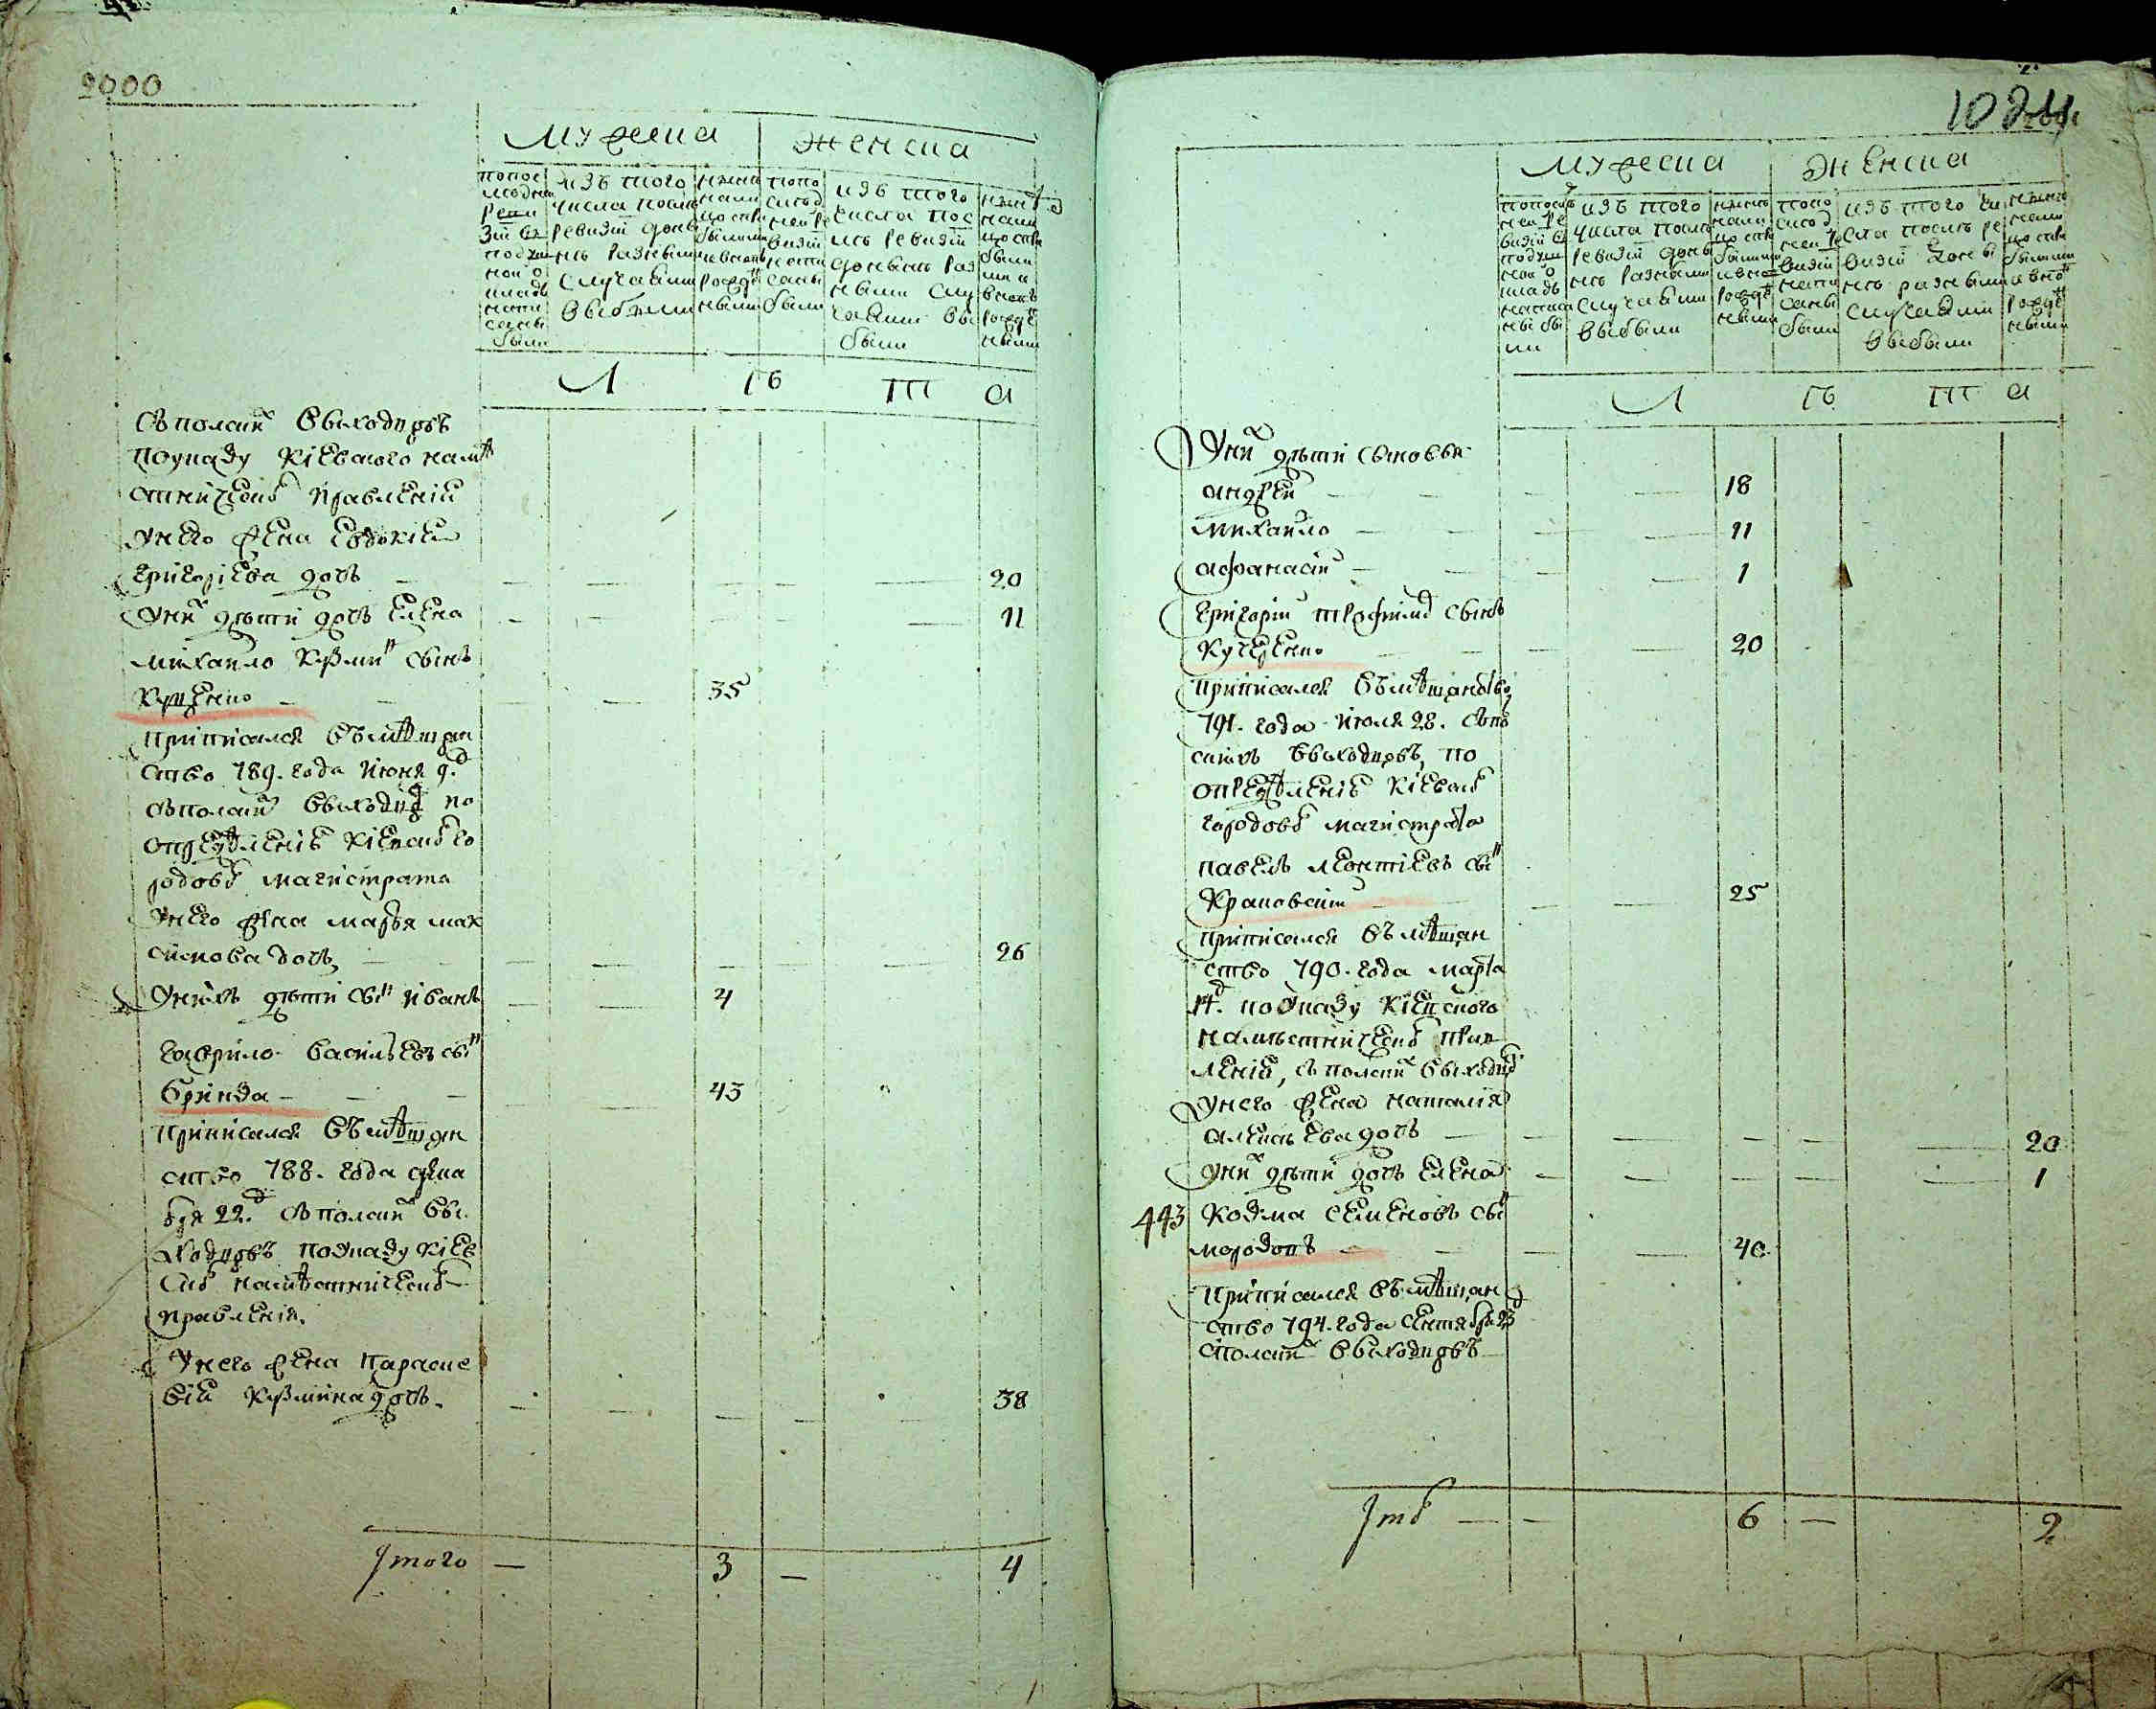 2000
Мужеска Женска
по пос
ледней
реви
зіи въ
подуш
ной о
кладъ
напи
саны
были
изъ того
числа после
ревизіи доны
не разными
случаями
выбыли
были
изъ того
числа пос
ле ревизіи
доныне раз
ными слу
чаями вы
были
Л Ѣ Т А
съ полскихъ выходцовъ
по указу Кіевского намѣ
стнического правленія
у него жена Евдокія
Григоріева дочь 20
у нихъ дѣти дочь Елена 11
Михайло Кузминъ сынъ
Куценко 35
приписался въ мѣщан
ство 789. года июня 9.
съ полскихъ выходцовъ по
опредѣленію Кіевского го
родового магистрата
у него жена Марья Мак
симова дочь 26
у нихъ дѣти сынъ Иванъ 4
Гаврило Васильевъ сынъ
Бринда 43
приписался въ мѣщан
ство 788. года дека
бря 22. съ полскихъ вы
ходцовъ по указу Кіев
ского намѣстнического
правленія.
у него жена Параске
вія Кузмина дочь. 38
Итого — 3 — 4
1024
Мужеска Женска
изъ того
числа после
ревизіи доны
не разными
случаями
выбыли
изъ того чи
сла после ре
визіи доны
не разными
случаями
выбыли
Л Ѣ Т А
у нихъ дѣти сыновья
Андрей 18
Михайло 11
Афанасій 1
Григорій Трофимовъ сынъ
Кучеренко 20
приписался въ мѣщанство
791. года июля 28. съ по
лскихъ выходцовъ, по
опредѣленію Кіевского
городового магистрата
Павелъ Леонтіевъ сынъ
Краковскій 25
приписался въ мѣщан
ство 790. года марта
14. по указу Кіевского
намѣстнического прав
ленія, съ полскихъ выходцовъ
у него жена Наталія
Алексѣева дочь 20
у нихъ дѣти дочь Елена 1
443 Козма Семеновъ сынъ
Морозовъ 40
приписался въ мѣщан
ство 794. года сентября 23
с полскихъ выходцовъ
Итого — — 6 — 2